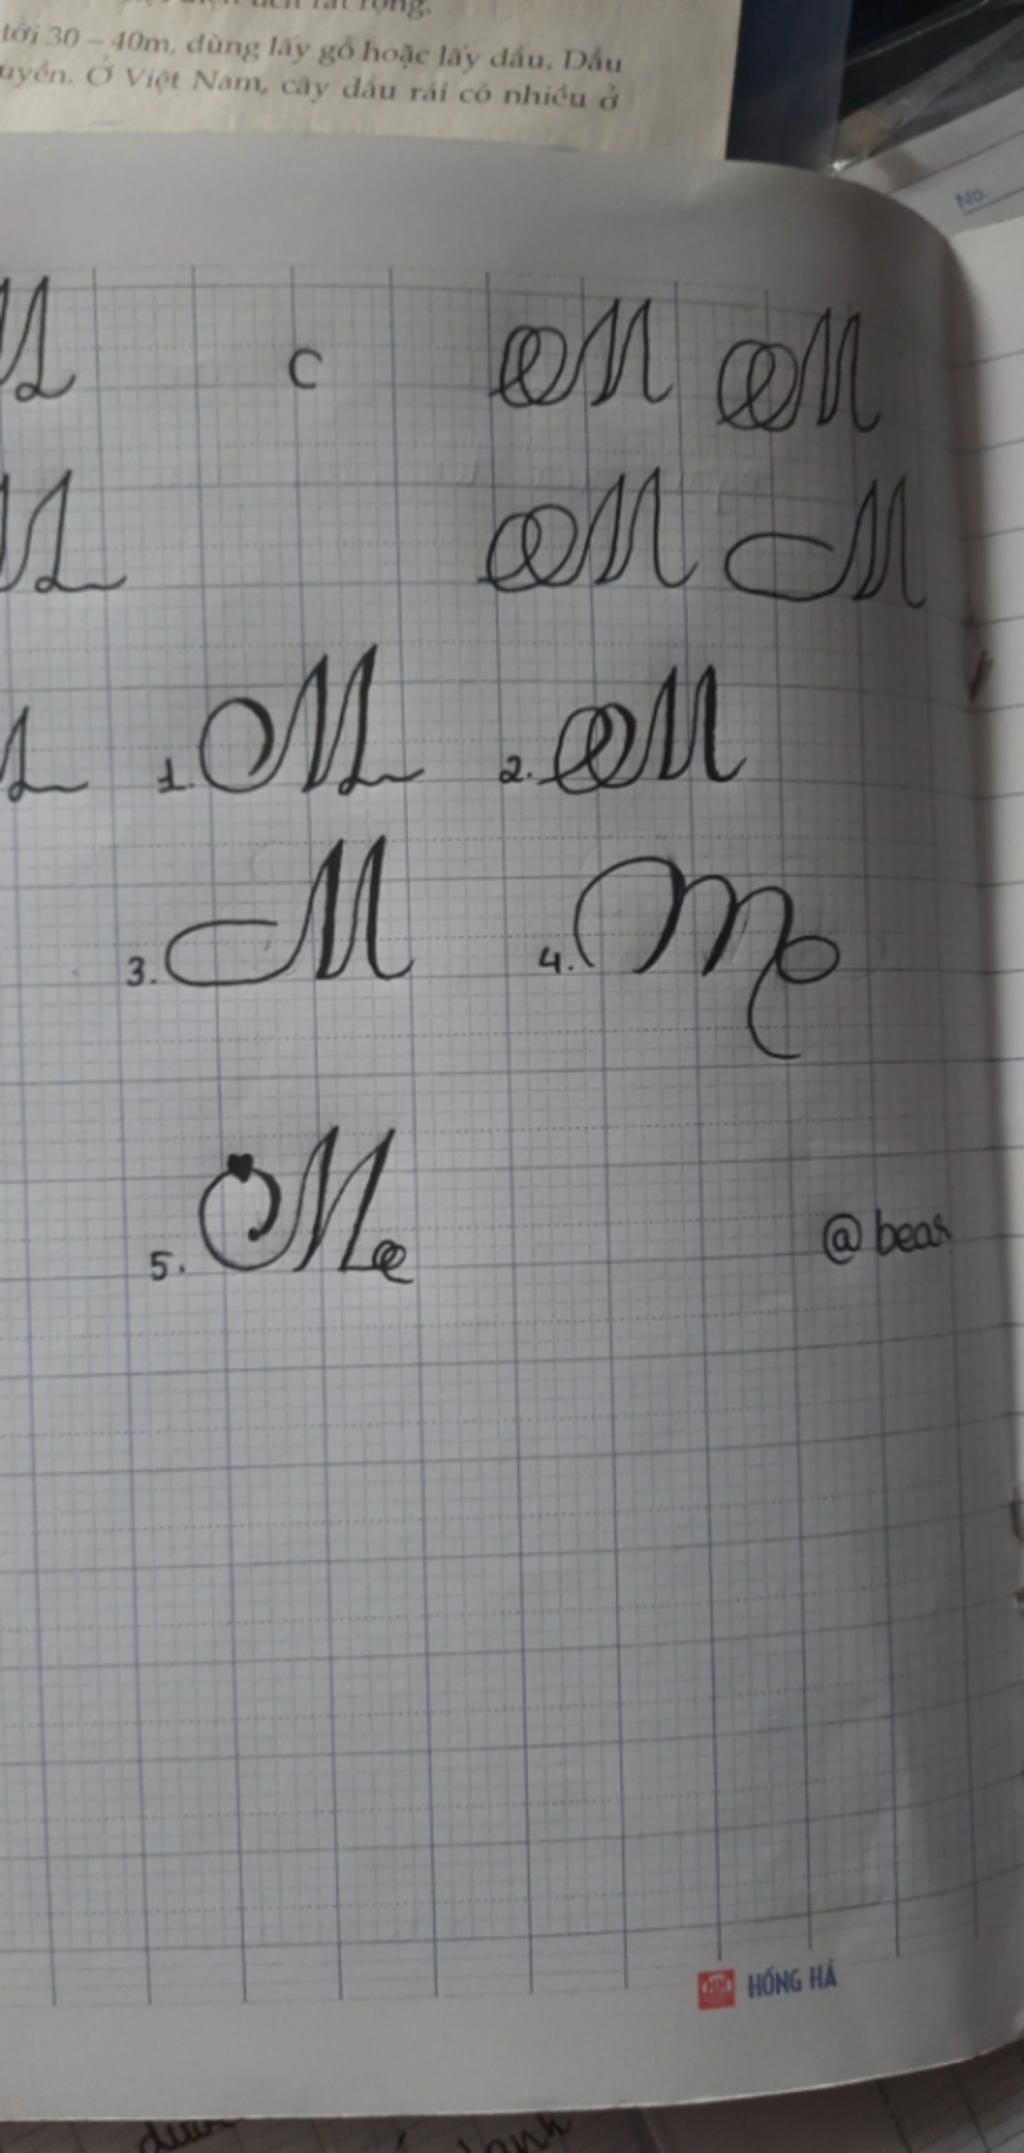 tới 30 – 40m, dùng lấy gỗ hoặc lấy dầu. Dầu
Ở Việt Nam, cây dầu rái có nhiều ở
No.
M c M M
M M M
M 1. M 2. M
3. M 4. M
5. M
@bear
HỒNG HÀ